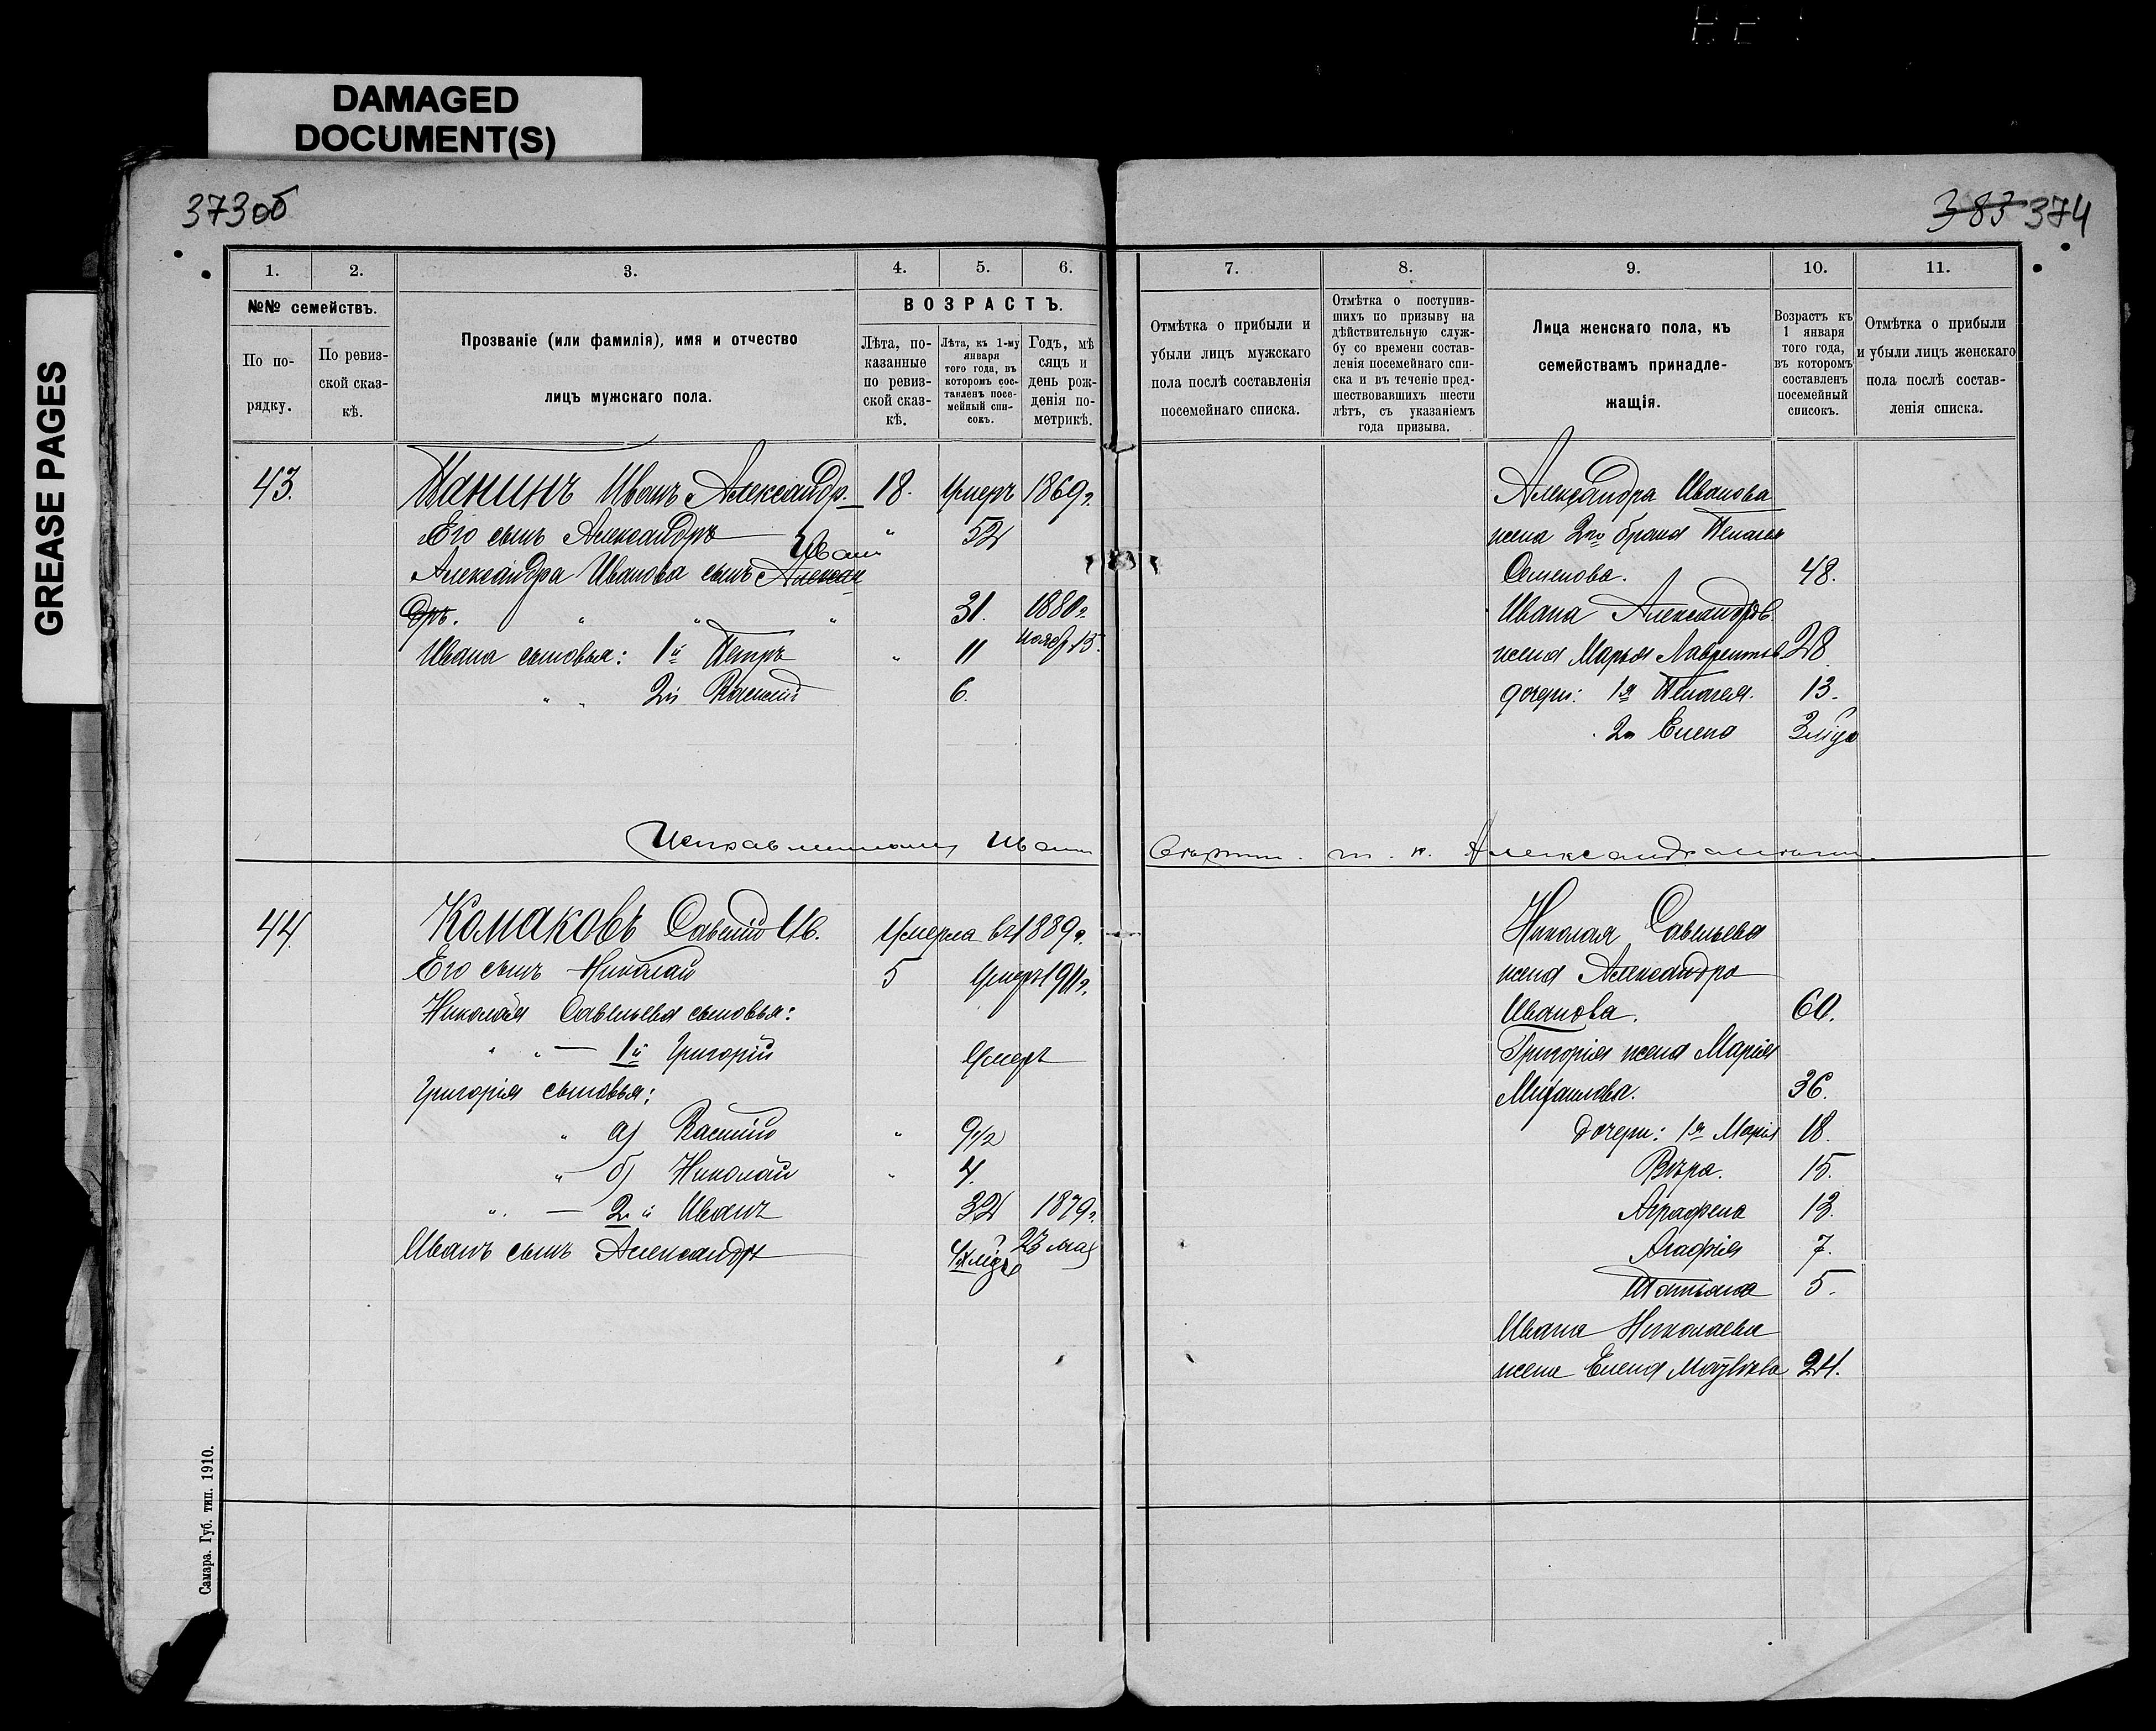 DAMAGED
DOCUMENT(S)
GREASE PAGES
373об
383 374
1.
2.
3.
4.
5.
6.
№№ семействъ.
По по-
рядку.
По ревиз-
ской сказ-
кѣ.
Прозваніе (или фамилія), имя и отчество
лицъ мужскаго пола.
ВОЗРАСТЪ.
Лѣта, по-
казанные
по ревиз-
ской сказ-
кѣ.
Лѣта, къ 1-му
января
того года, въ
которомъ сос-
тавленъ посе-
мейный спи-
сокъ.
Годъ, мѣ
сяцъ и
день рож-
денія по-
метрикѣ.
7.
8.
9.
10.
11.
Отмѣтка о прибыли и
убыли лицъ мужскаго
пола послѣ составленія
посемейнаго списка.
Отмѣтка о поступив-
шихъ по призыву на
дѣйствительную служ-
бу со времени состав-
ленія посемейнаго спи-
ска и въ теченіе пред-
шествовавшихъ шести
лѣтъ, съ указаніемъ
года призыва.
Лица женскаго пола, къ
семействамъ принадле-
жащія.
Возрастъ къ
1 января
того года,
въ которомъ
составленъ
посемейный
списокъ.
Отмѣтка о прибыли
и убыли лицъ женскаго
пола послѣ состав-
ленія списка.
43. Панинъ Иванъ Александр. 18. Умеръ 1869г.
Его сынъ Александръ " 52
Иванъ
Александра Иванова сынъ Алексан
дръ. " " " 31. 1880г.
ноябр 13.
Ивана сыновья: 1й Петръ " 11
" " 2й Василий 6.
Александра Иванова
жена 2го брака Пелагея
Семенова. 48.
Ивана Александров
жена Марья Лаврентьев 28
дочери: 1я Пелагея. 13.
2я Елена 3 мѣс
Исправленному Иванъ вѣрить. т. к. Александра
44. Комаковъ Савелій Ив. Умерла въ 1889г.
Его сынъ Николай 5 Умеръ 1911г.
Николая Савельева сыновья:
" " — 1й Григорій Умеръ
Григорія сыновья:
" а) Василій " 9 1/2
" б) Николай " 4.
" — 2й Иванъ 32 1879г.
Иванъ сынъ Александръ 4 мѣс 23 мая
Николая Савельева
жена Александра
Иванова. 60.
Григорія жена Марія
Михаилова. 36.
дочери: 1я Марія 18.
Вѣра. 15.
Аграфена 13.
Агафія 7.
Татьяна 5.
Ивана Николаева
жена Елена Матвѣева 24.
Самара. Губ. тип. 1910.